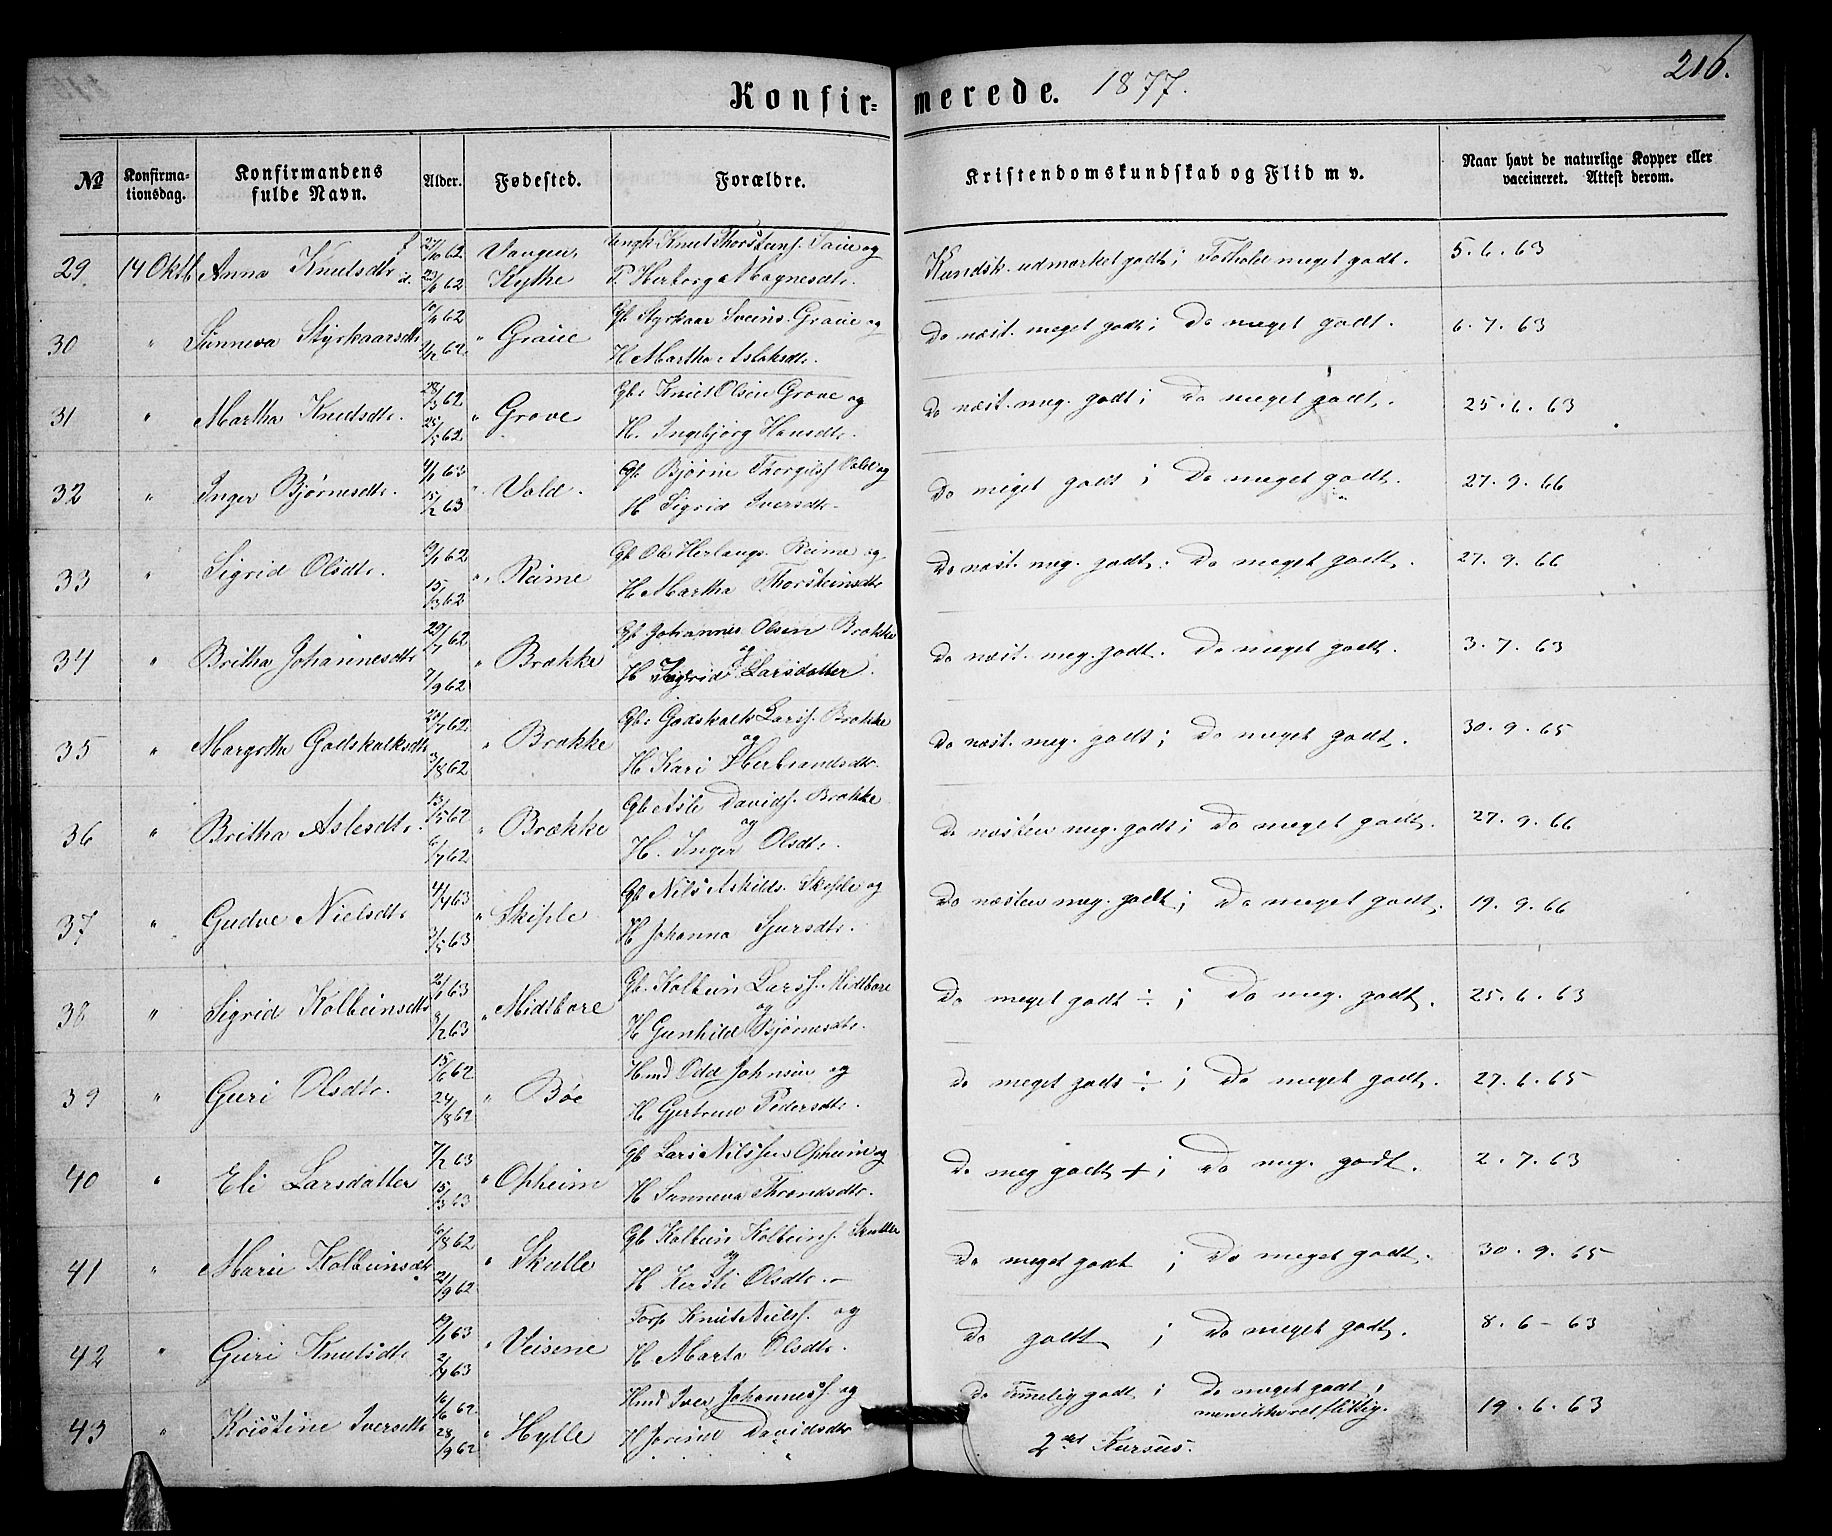 216.
Konfirmerede. 1877.
No
Konfirmationsdag.
Konfirmandens fulde Navn.
Alder.
Fødested.
Forældre.
Kristendomskundskab og Flid m v.
Naar havt de naturlige Kopper eller vaccineret. Attest derom.
29. 14 Oktb Anna Knutsdtr f. 27/10 62 d. 62 Vangen, Kythe Ungk. Knut Thorsteins. Saue og P. Herborg Magnesdtr. Kundsk. udmærket godt; Forhold meget godt. 5. 6. 63
30 " Sunneva Styrkaarsdtr 62 62 " Graue Gb. Styrkaar Sveins. Graue og H Martha Aslaksdtr. Do næst. meget godt; Do meget godt. 6. 7. 63
31 " Martha Knutsdtr. 28/3 62 25/5 62 " Grove Gb. Knut Olsen Grove og H. Ingebjørg Hansdtr. Do næst. meg. godt; Do meget godt. 25. 6. 63
32 " Inger Bjørnesdtr. 4/1 63 15/2 63 " Vold. Gb. Bjørne Thorgils. og H Sigrid Iversdtr. Do meget godt; Do meget godt. 27. 9. 66
33 " Sigrid Olsdtr. 62 15/3 62 " Reime Gb. Ole Herlaugs. Reime og H Martha Thorsteinsdtr Do næst. meg. godt. Do meget godt. 27. 9. 66
34 " Britha Johannesdtr 29/7 62 7/9 62 " Brække Gb. Johannes Olsen Brække og H Larsdatter. Do næst. meg. godt. Do meget godt. 3. 7. 63
35 " Margrtha Godskalksdtr 62 3/8 62 " Brække Gb. Godskalk Larss. Brække og H Kari Herbrandsdtr. Do næst. meg. godt; Do meget godt. 30. 9. 65
36 " Britha Aslesdtr. 13/5 62 6/7 62 " Brække Gb Asle Davids. Brække og H. Inger Olsdtr. Do næsten meg. godt; Do meget godt. 27. 9. 66
37 " Gudve Nielsdtr 4/4 63 3/5 63 " Skiple Gb. Nils Askilds. Skiple og H Johanna Sjursdtr. Do næsten meg. godt; Do meget godt. 19. 9. 66
38 " Sigrid Kolbeinsdtr 2/1 63 8/2 63 " Midtbøre Gb. Kolbein Larss. Midtbøre og H Gunhild Bjørnesdtr. Do meget godt ÷; Do meg. godt. 25. 6. 63
39 " Guri Olsdtr. 15/6 62 24/8 62 " Bøe Hmd Odd Johnsen og H Gjertrud Pedersdtr. Do meget godt ÷; Do meget godt. 27. 6. 65
40 " Eli Larsdatter 7/2 63 15/3 63 " Opheim Gb Lars Nilssen Opheim og H Sunneva Throndsdtr. Do meg godt +; Do meg. godt. 2. 7. 63
41 " Mari Kolbeinsdtr 6/8 62 21/9 62 " Skutle Gb Kolbein Kolbeins. Skutle og H Kirsti Olsdtr. – Do meget godt; Do meget godt. 30. 9. 65
42 " Guri Knutsdtr 19/1 63 2/4 63 " Veisene Forp Knut Nielss. og H Marta Olsdtr. Do godt; Do meget godt. 8. 6 – 63
43 " Kristine Iversdtr 16/6 62 28/9 62 " Hylle Hmd Iver Johanness. og H Davidsdtr Do Temmelig godt; Do meget godt, men ikke ret flittig. 19. 6. 63
2det Kursus.